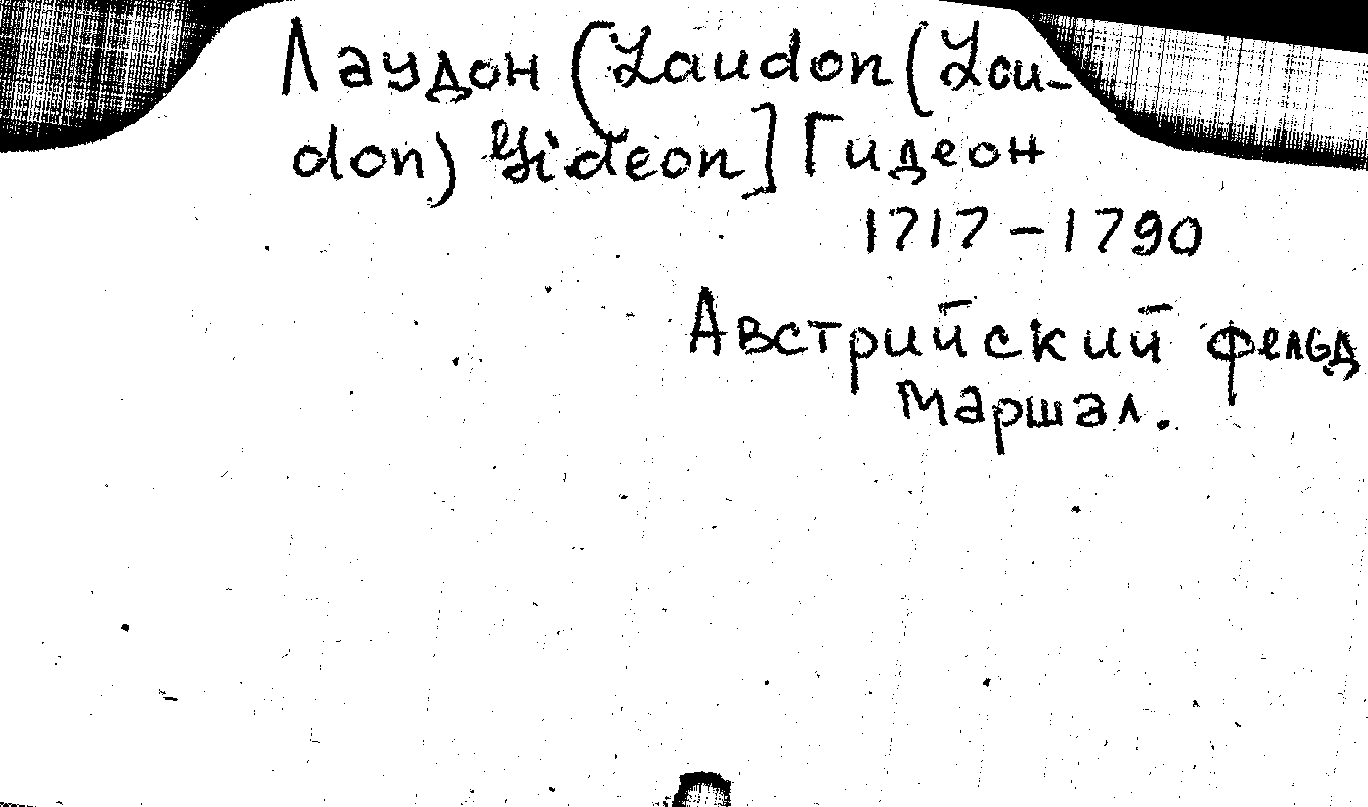 Лаудон (Laudon (Lou-
don) Gideon] Гидеон
1717-1790
Австрийский фельд
маршал.